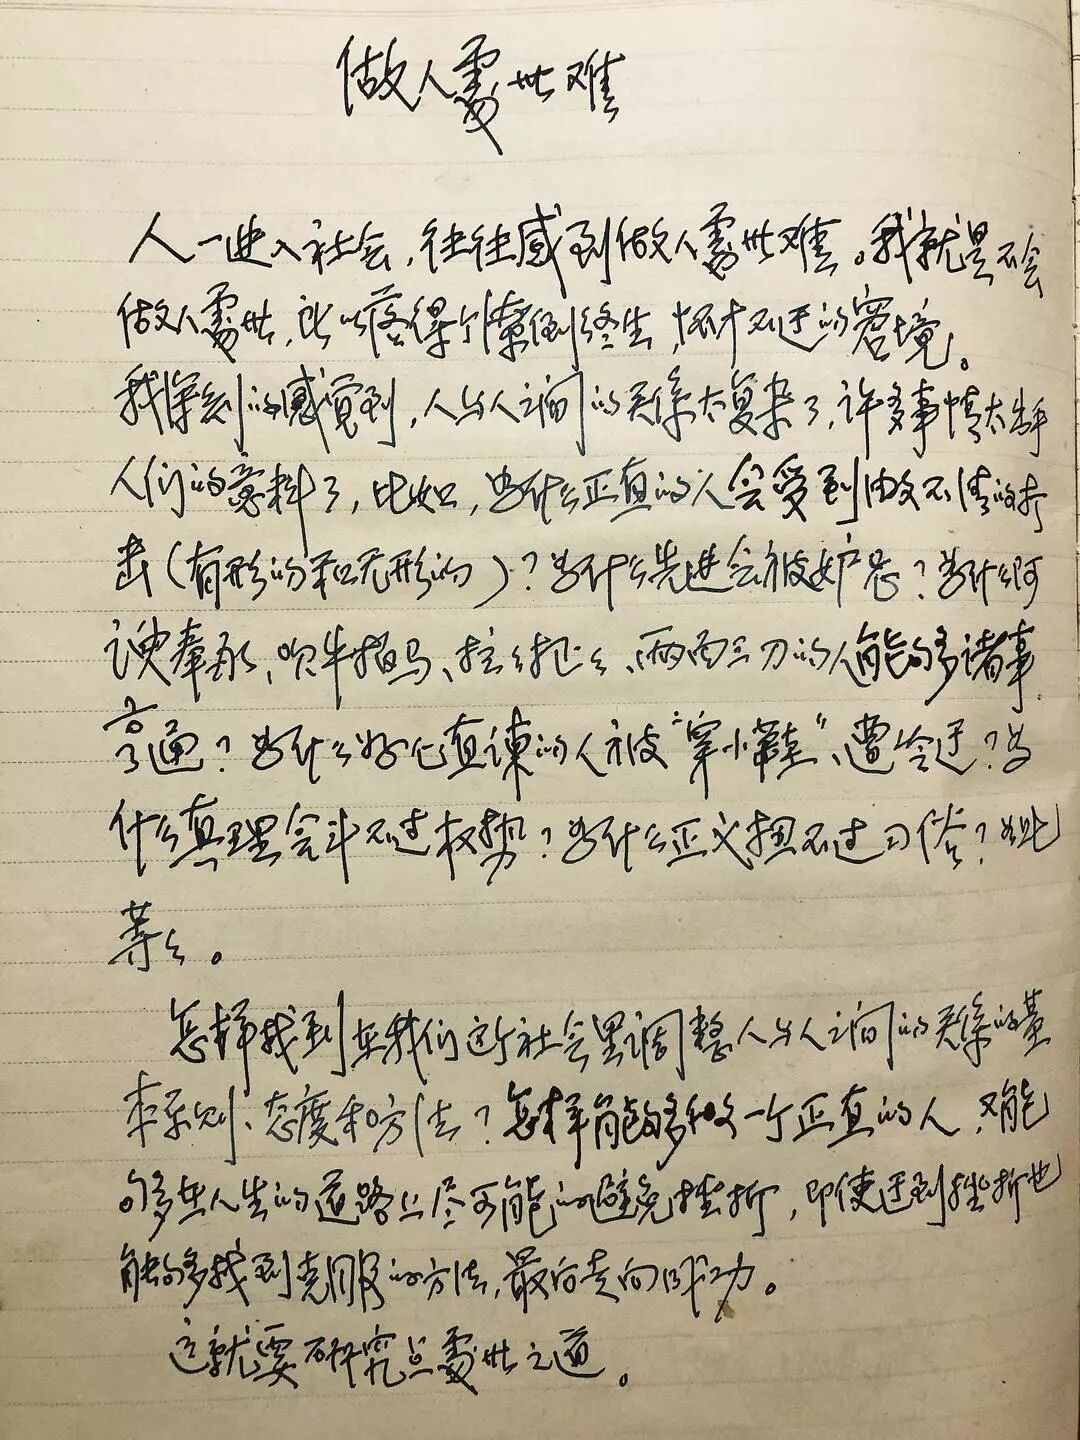 做人處世难
人一进入社会，往往感到做人處世难。我就是不会
做人處世，所以落得个潦倒终生，怀才不遇的窘境。
我深刻的感覚到，人与人之间的关係太复杂了，许多事情太出乎
人们的意料了，比如，为什么正直的人会受到毫不留情的打
击（有形的和无形的）？为什么先进会被妒忌？为什么阿
谀奉承、吹牛拍马、拉拉扯扯、两面三刀的人能够诸事
亨通？为什么好心直谏的人被“穿小鞋”、遭冷遇？为
什么真理会斗不过权势？为什么正义扭不过习俗？如此
等等。
怎样找到在我们这个社会里调整人与人之间的关係的基
本原则、态度和方法？怎样能够做一个正直的人，又能
够在人生的道路上尽可能的避免挫折，即使遇到挫折也
能够找到克服的方法，最后走向成功。
这就要研究点處世之道。